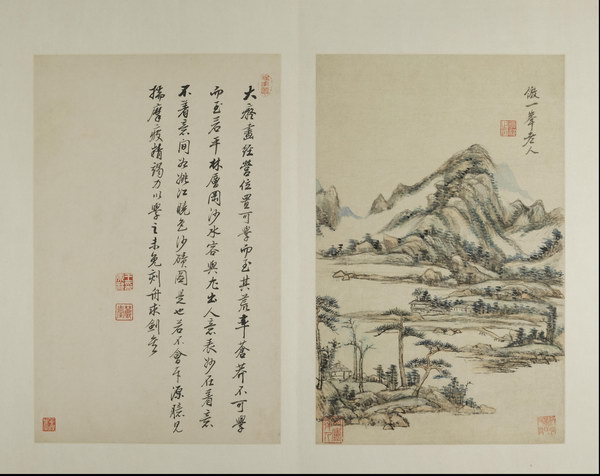 倣一峯老人
大癡畫經營位置可學而至其荒率蒼莽不可學
而至若平林層岡沙水容與尤出人意表妙在着意
不着意間如姚江曉色沙磧圖是也若不會本源臆見
揣摩疲精竭力以學之未免刻舟求劍矣